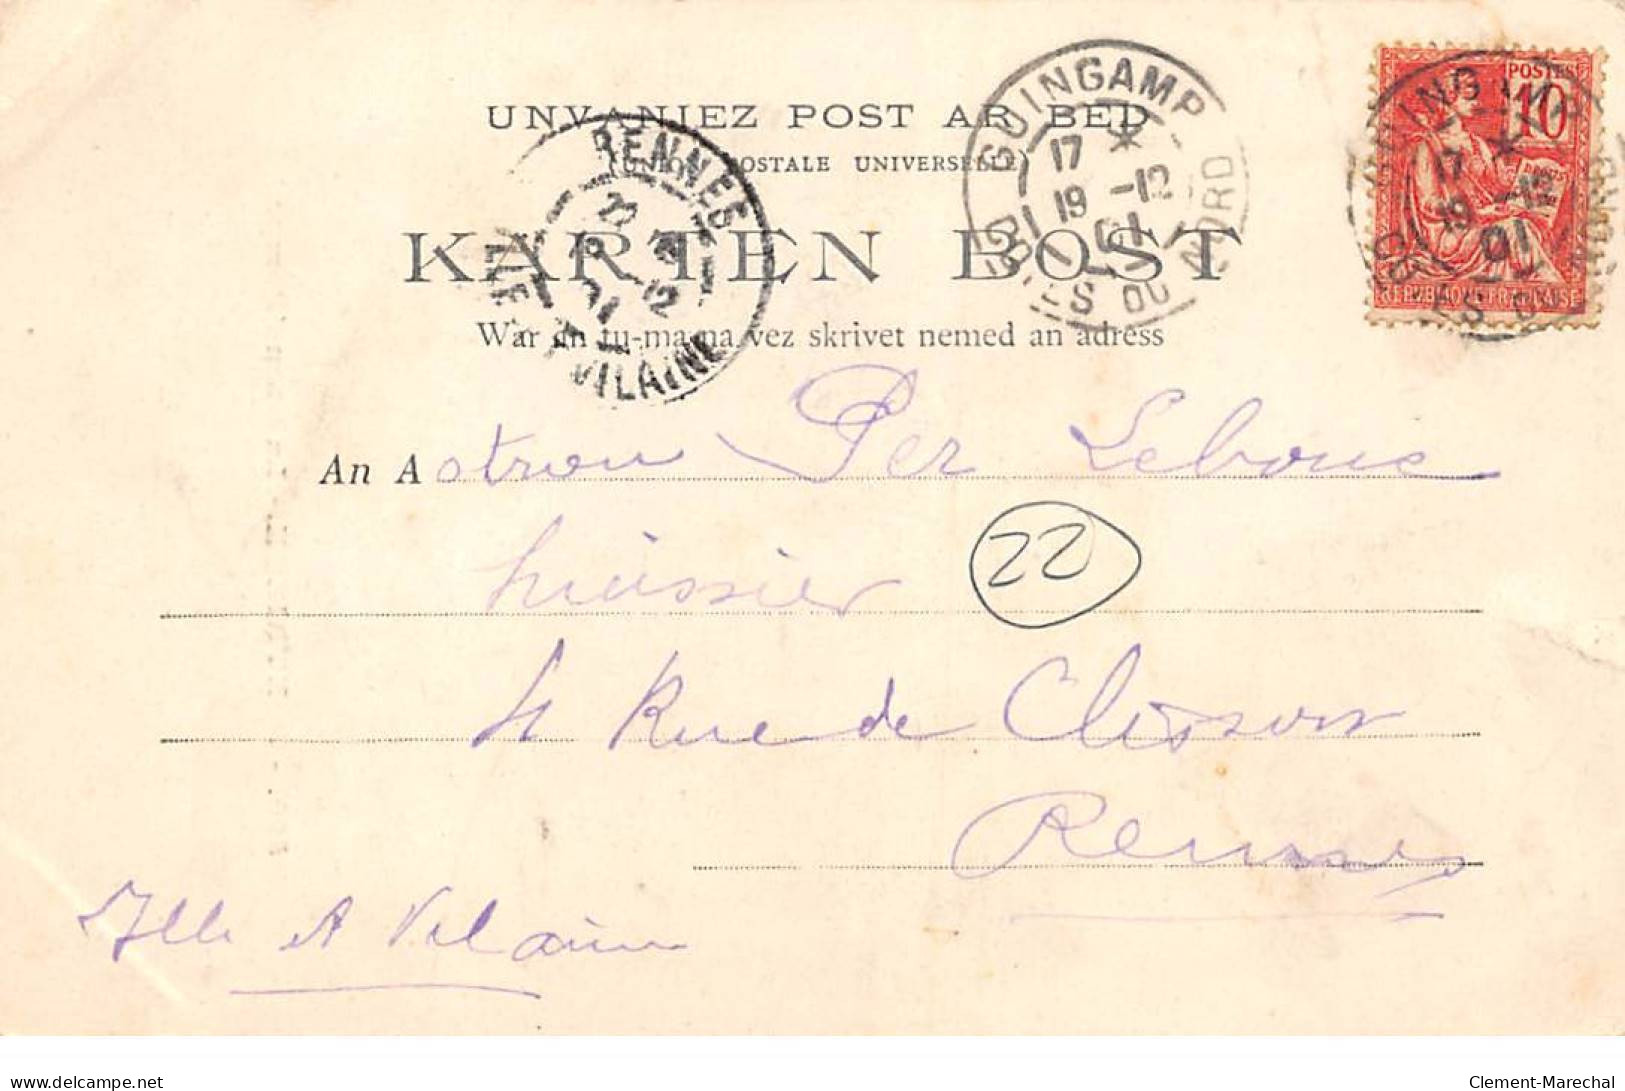 UNVANIEZ POST AR BED
(UNION POSTALE UNIVERSELLE)
KARTEN BOST
War an tu-ma-ma vez skrivet nemed an adress
GUINGAMP
17 *
19 -12
01
COTES DU NORD
RENNES
ILLE ET VILAINE
POSTES
10
REPUBLIQUE FRANÇAISE
GUINGAMP
17 *
19 -12
01
An Aotrou Per Lebouc
huissier
22
4 Rue de Clisson
Rennes
Ille et Vilaine
delcampe.net
Clement-Marechal